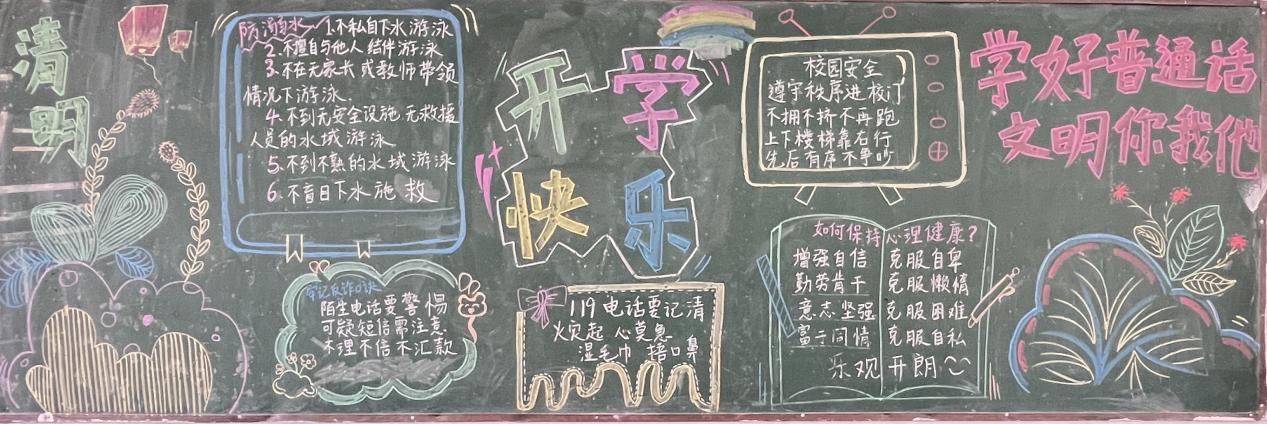 清
明
防溺水
1.不私自下水游泳
2.不擅自与他人结伴游泳
3.不在无家长或教师带领
情况下游泳
4.不到无安全设施 无救援
人员的水域游泳
5.不到不熟的水域游泳
6.不盲目下水施救
牢记反诈口诀
陌生电话要警惕
可疑短信需注意
不理不信不汇款
开学
快乐
119电话要记清
火灾起 心莫急
湿毛巾 捂口鼻
校园安全
遵守秩序进校门
不拥不挤不再跑
上下楼梯靠右行
先后有序不争吵
如何保持心理健康?
增强自信 克服自卑
勤劳肯干 克服懒惰
意志坚强 克服困难
富于同情 克服自私
乐观开朗
学好普通话
文明你我他